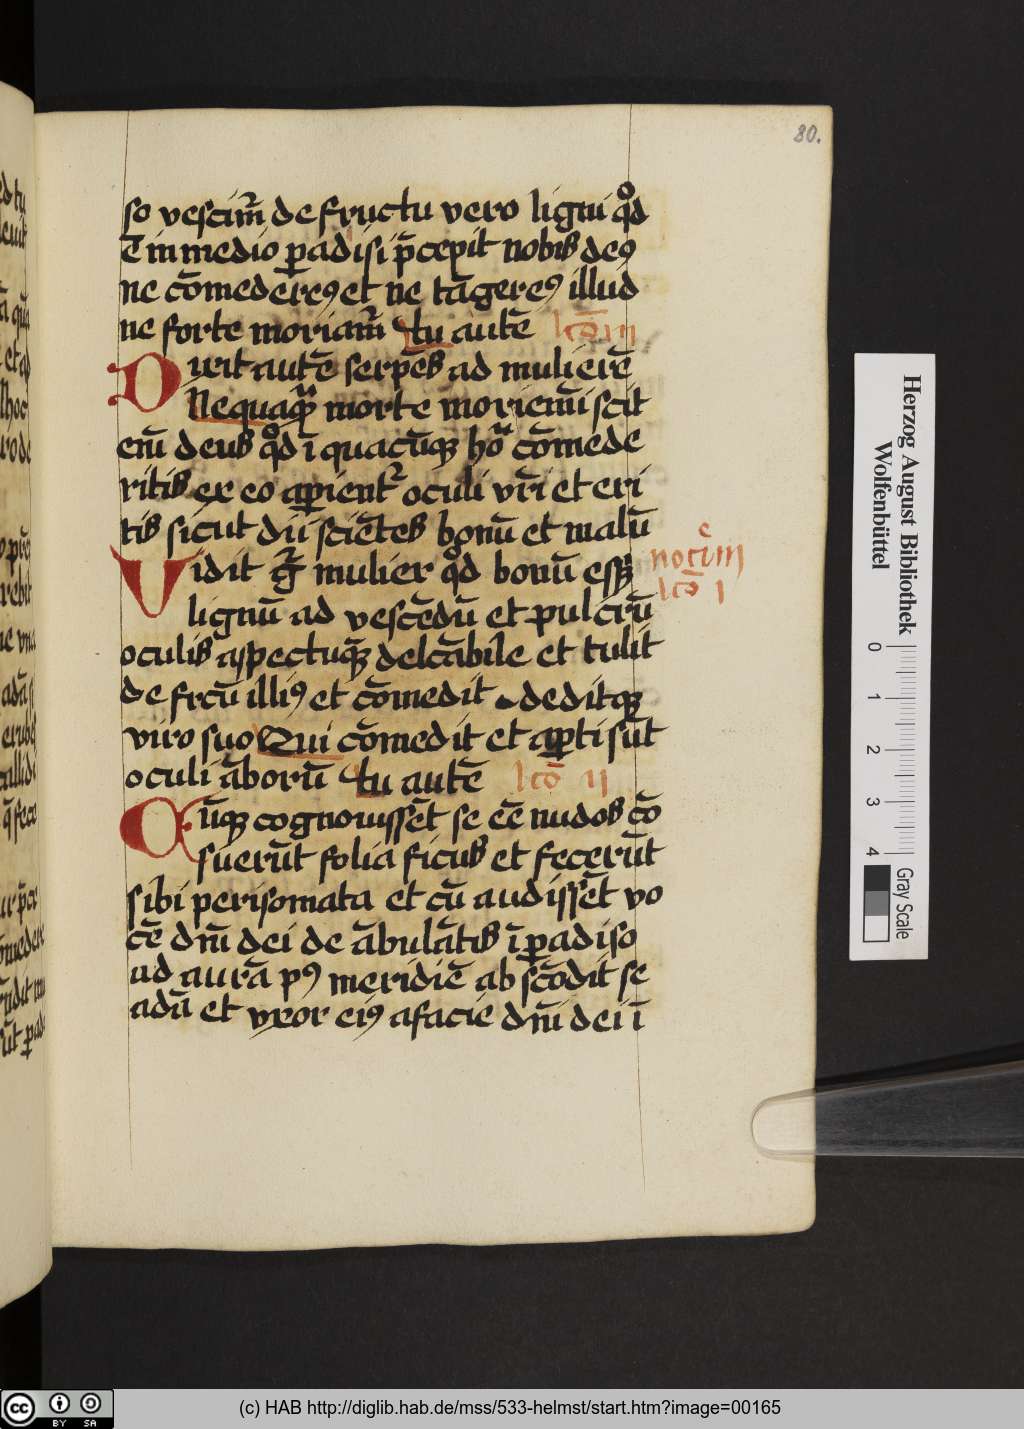 80.
so vescim̃ de fructu vero ligni qͦd
ē in medio ꝑadisi p̄cepit nobis deꝰ
ne cōmederēꝰ et ne tāgereꝰ illud
ne forte moriam̃ tu autē lcō iii
Dixit autē serpēs ad mulierē
Nequaqᷓ morte moriemī scit
enī deus qͦd ī quacūqꝫ hoᷓ cōmede
ritis ex eo aꝑientᷣ oculi vr̄i et eri
tis sicut dii sciētes bonū et malū
Vidit gͥ mulier qͦd bonū essꝫ
noct̄ m̄
lcō i
lignū ad vescēdū et pulcrū
oculis aspectuqꝫ delcābile et tulit
de frcū illiꝰ et cōmedit deditqꝫ
viro suo Qui cōmedit et aꝑti sūt
oculi āborū tu autē lcō ii
Cūqꝫ cognouissēt se eē nudos cō
suerūt folia ficus et fecerūt
sibi perisomata et cū audissēt vo
cē dnī dei de ābulātis ī ꝑadiso
ad aurā pꝰ meridiē abscōdit se
adā et vxor eiꝰ a facie dnī dei ī
Herzog August Bibliothek
Wolfenbüttel
0 1 2 3 4
Gray Scale
cc BY SA
(c) HAB http://diglib.hab.de/mss/533-helmst/start.htm?image=00165